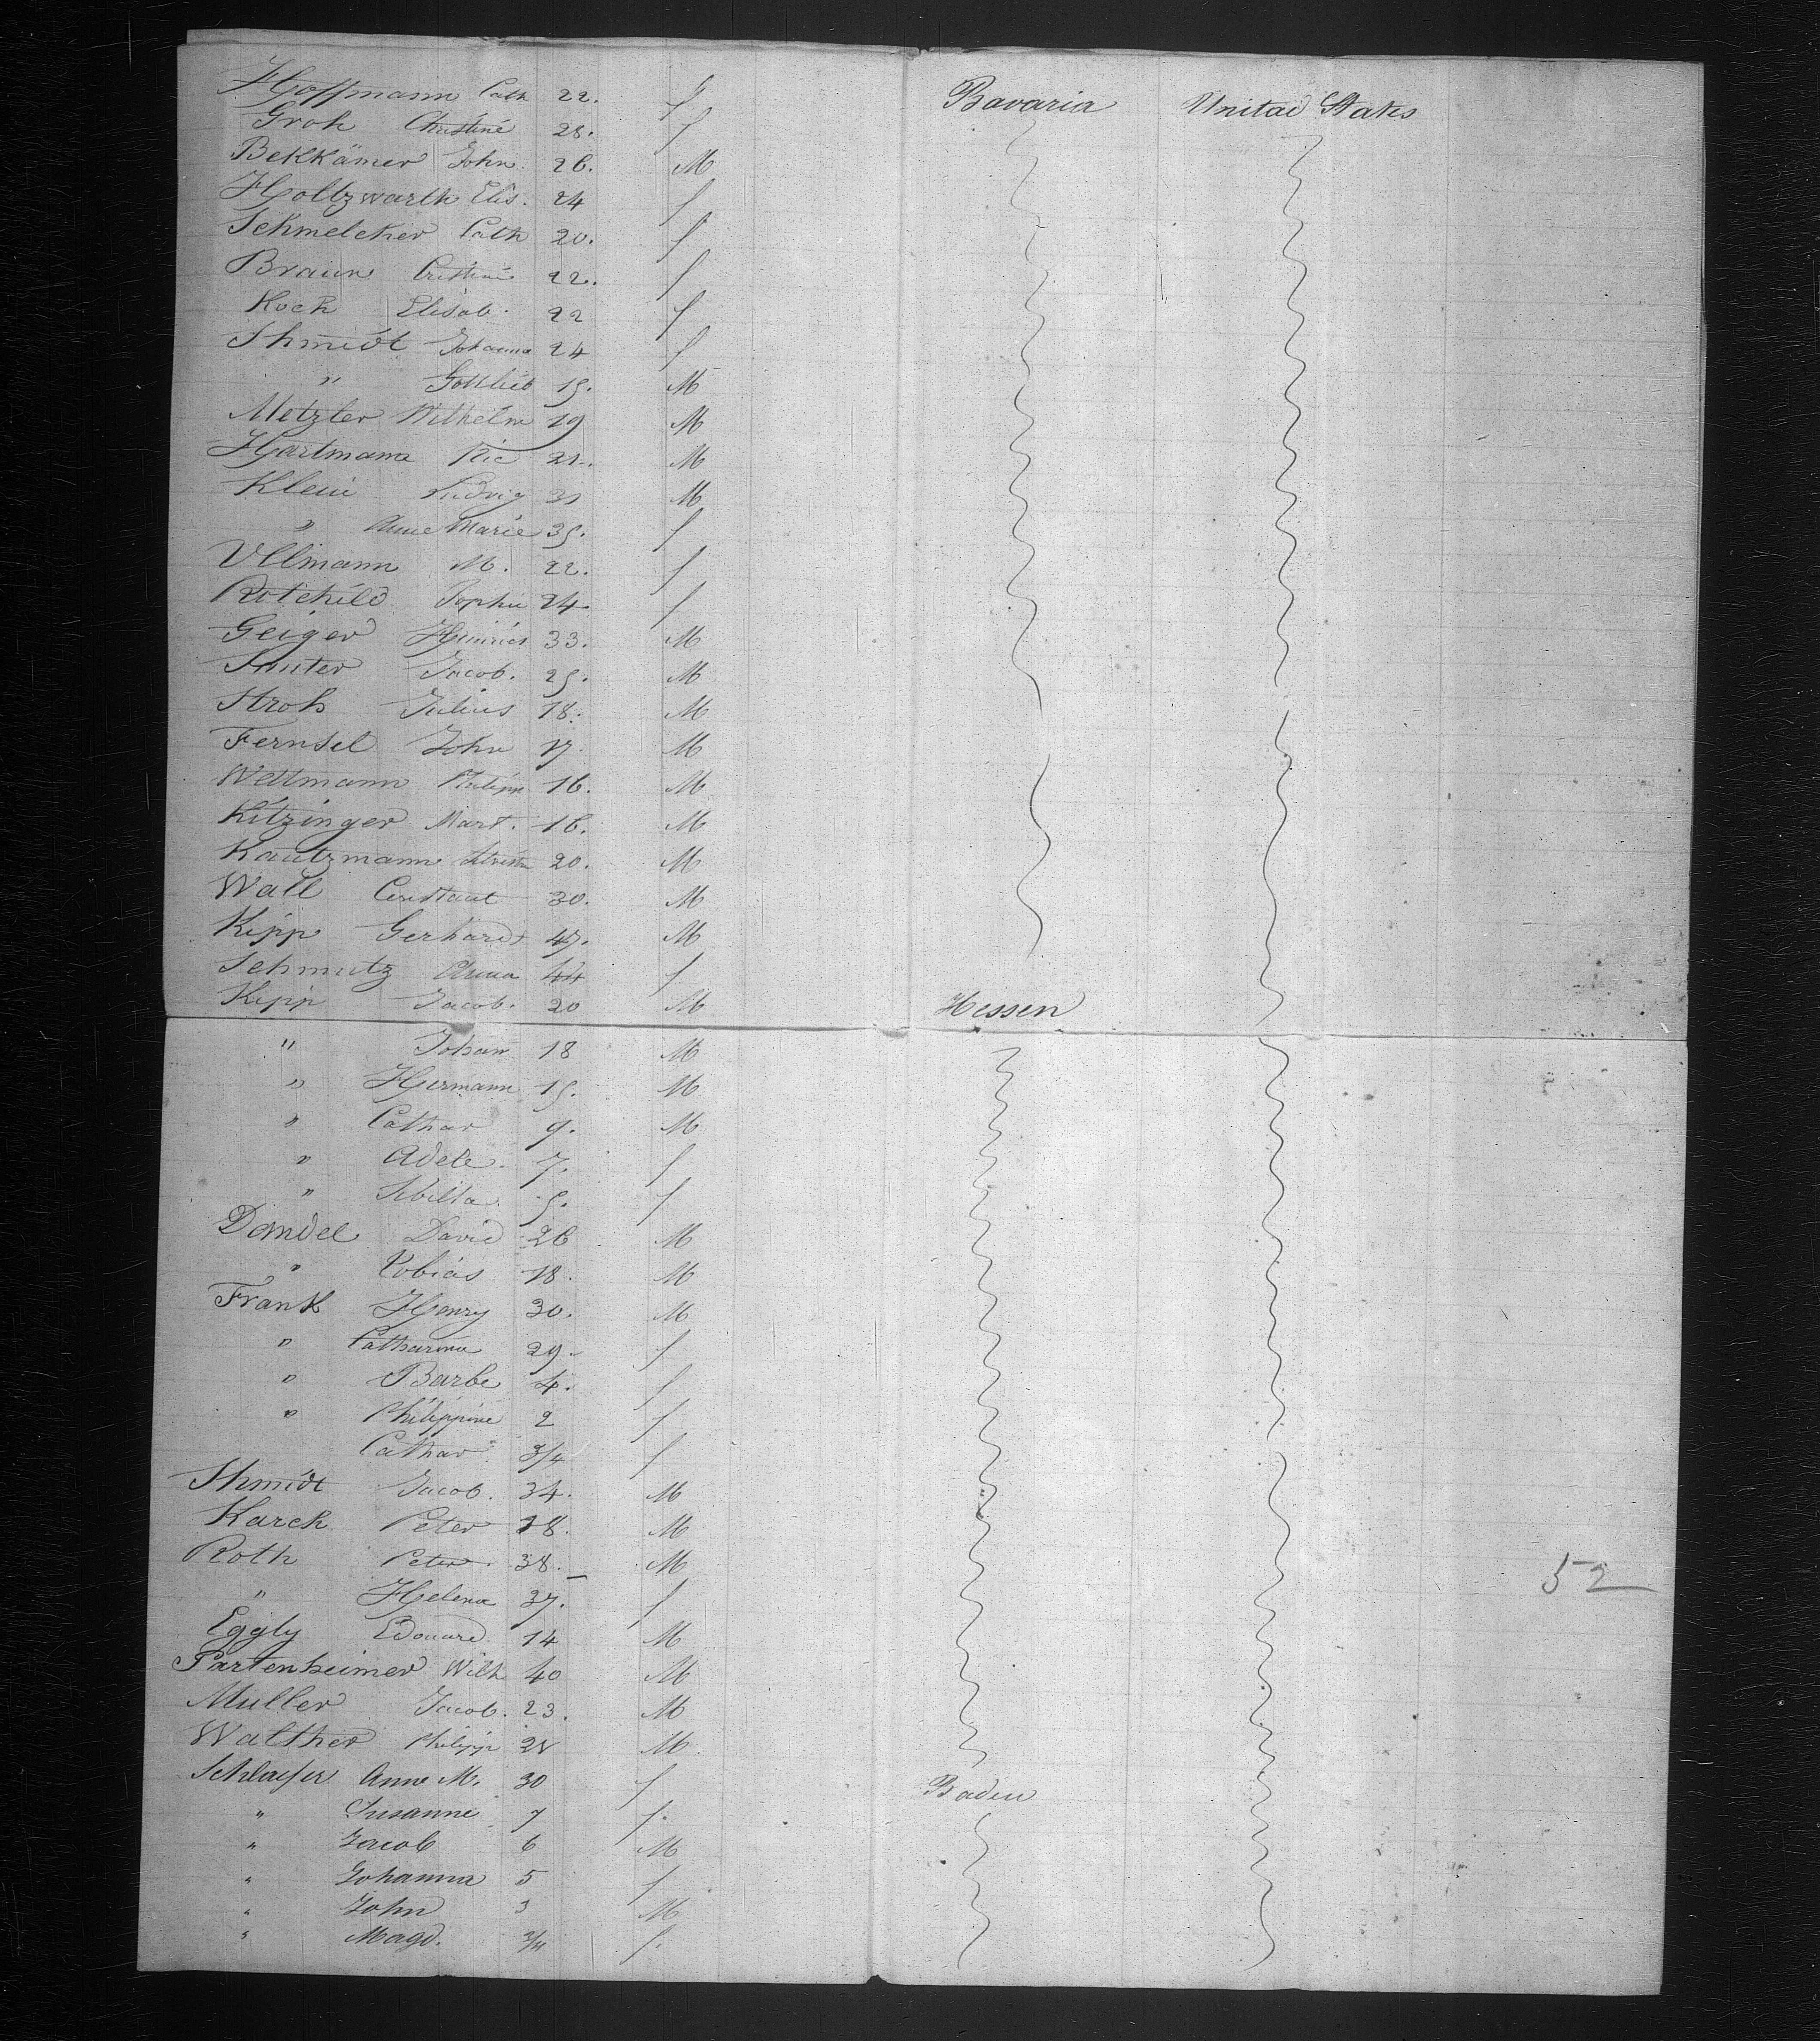 Hoffmann Cath 22. f Bavaria United States
Groh Christine 28. f
Bekkämer John. 26. M
Holtzwarth Elis. 24 f
Schmelcher Cath 20. f
Braun Cristine 22. f
Koch Elisab. 22 f
Shmidt Johanna 24 f
" Gottlieb 15. M
Metzler Wilhelm 19 M
Hartmann Ric 21. M
Klein Ludvig 31 M
" Anne Marie 35. f
Ullmann M. 22. f
Rotchild Sophie 24. f
Geiger Heinrich 33. M
Suter Jacob. 25. M
Stroh Julius 18. M
Fernsel John 17. M
Wettmann Philipp 16. M
Kitzinger Mart. 16. M
Kautzmann 20. M
Wall Constant 30. M
Kipp Gerhard 47. M
Schmutz Anna 44 f
Kipp Jacob. 20 M Hessen
" Johan 18 M
" Hermann 15. M
" Cathar 9. M
" Adele. 7. f
" Sibilla 5. f
Dandel David 26 M
" Tobias 18. M
Frank Henry 30. M
" Catharina 29. f
" Barbe 4. f
" Philippine 2 f
Cathar 3/4 f
Shmidt Jacob. 34. M
Karch Peter 18. M
Roth Peter. 38. M 52
" Helena 37. f
Eggly Edouard 14 M
Partenheimer Wilh 40 M
Muller Jacob. 23. M
Walther Philipp M
Schlaefer Anne M. 30 f Baden
" Susanne 7 f.
" Jacob 6 M
" Johanna 5 f
" John 3 M
" Magd. 3/4 f.